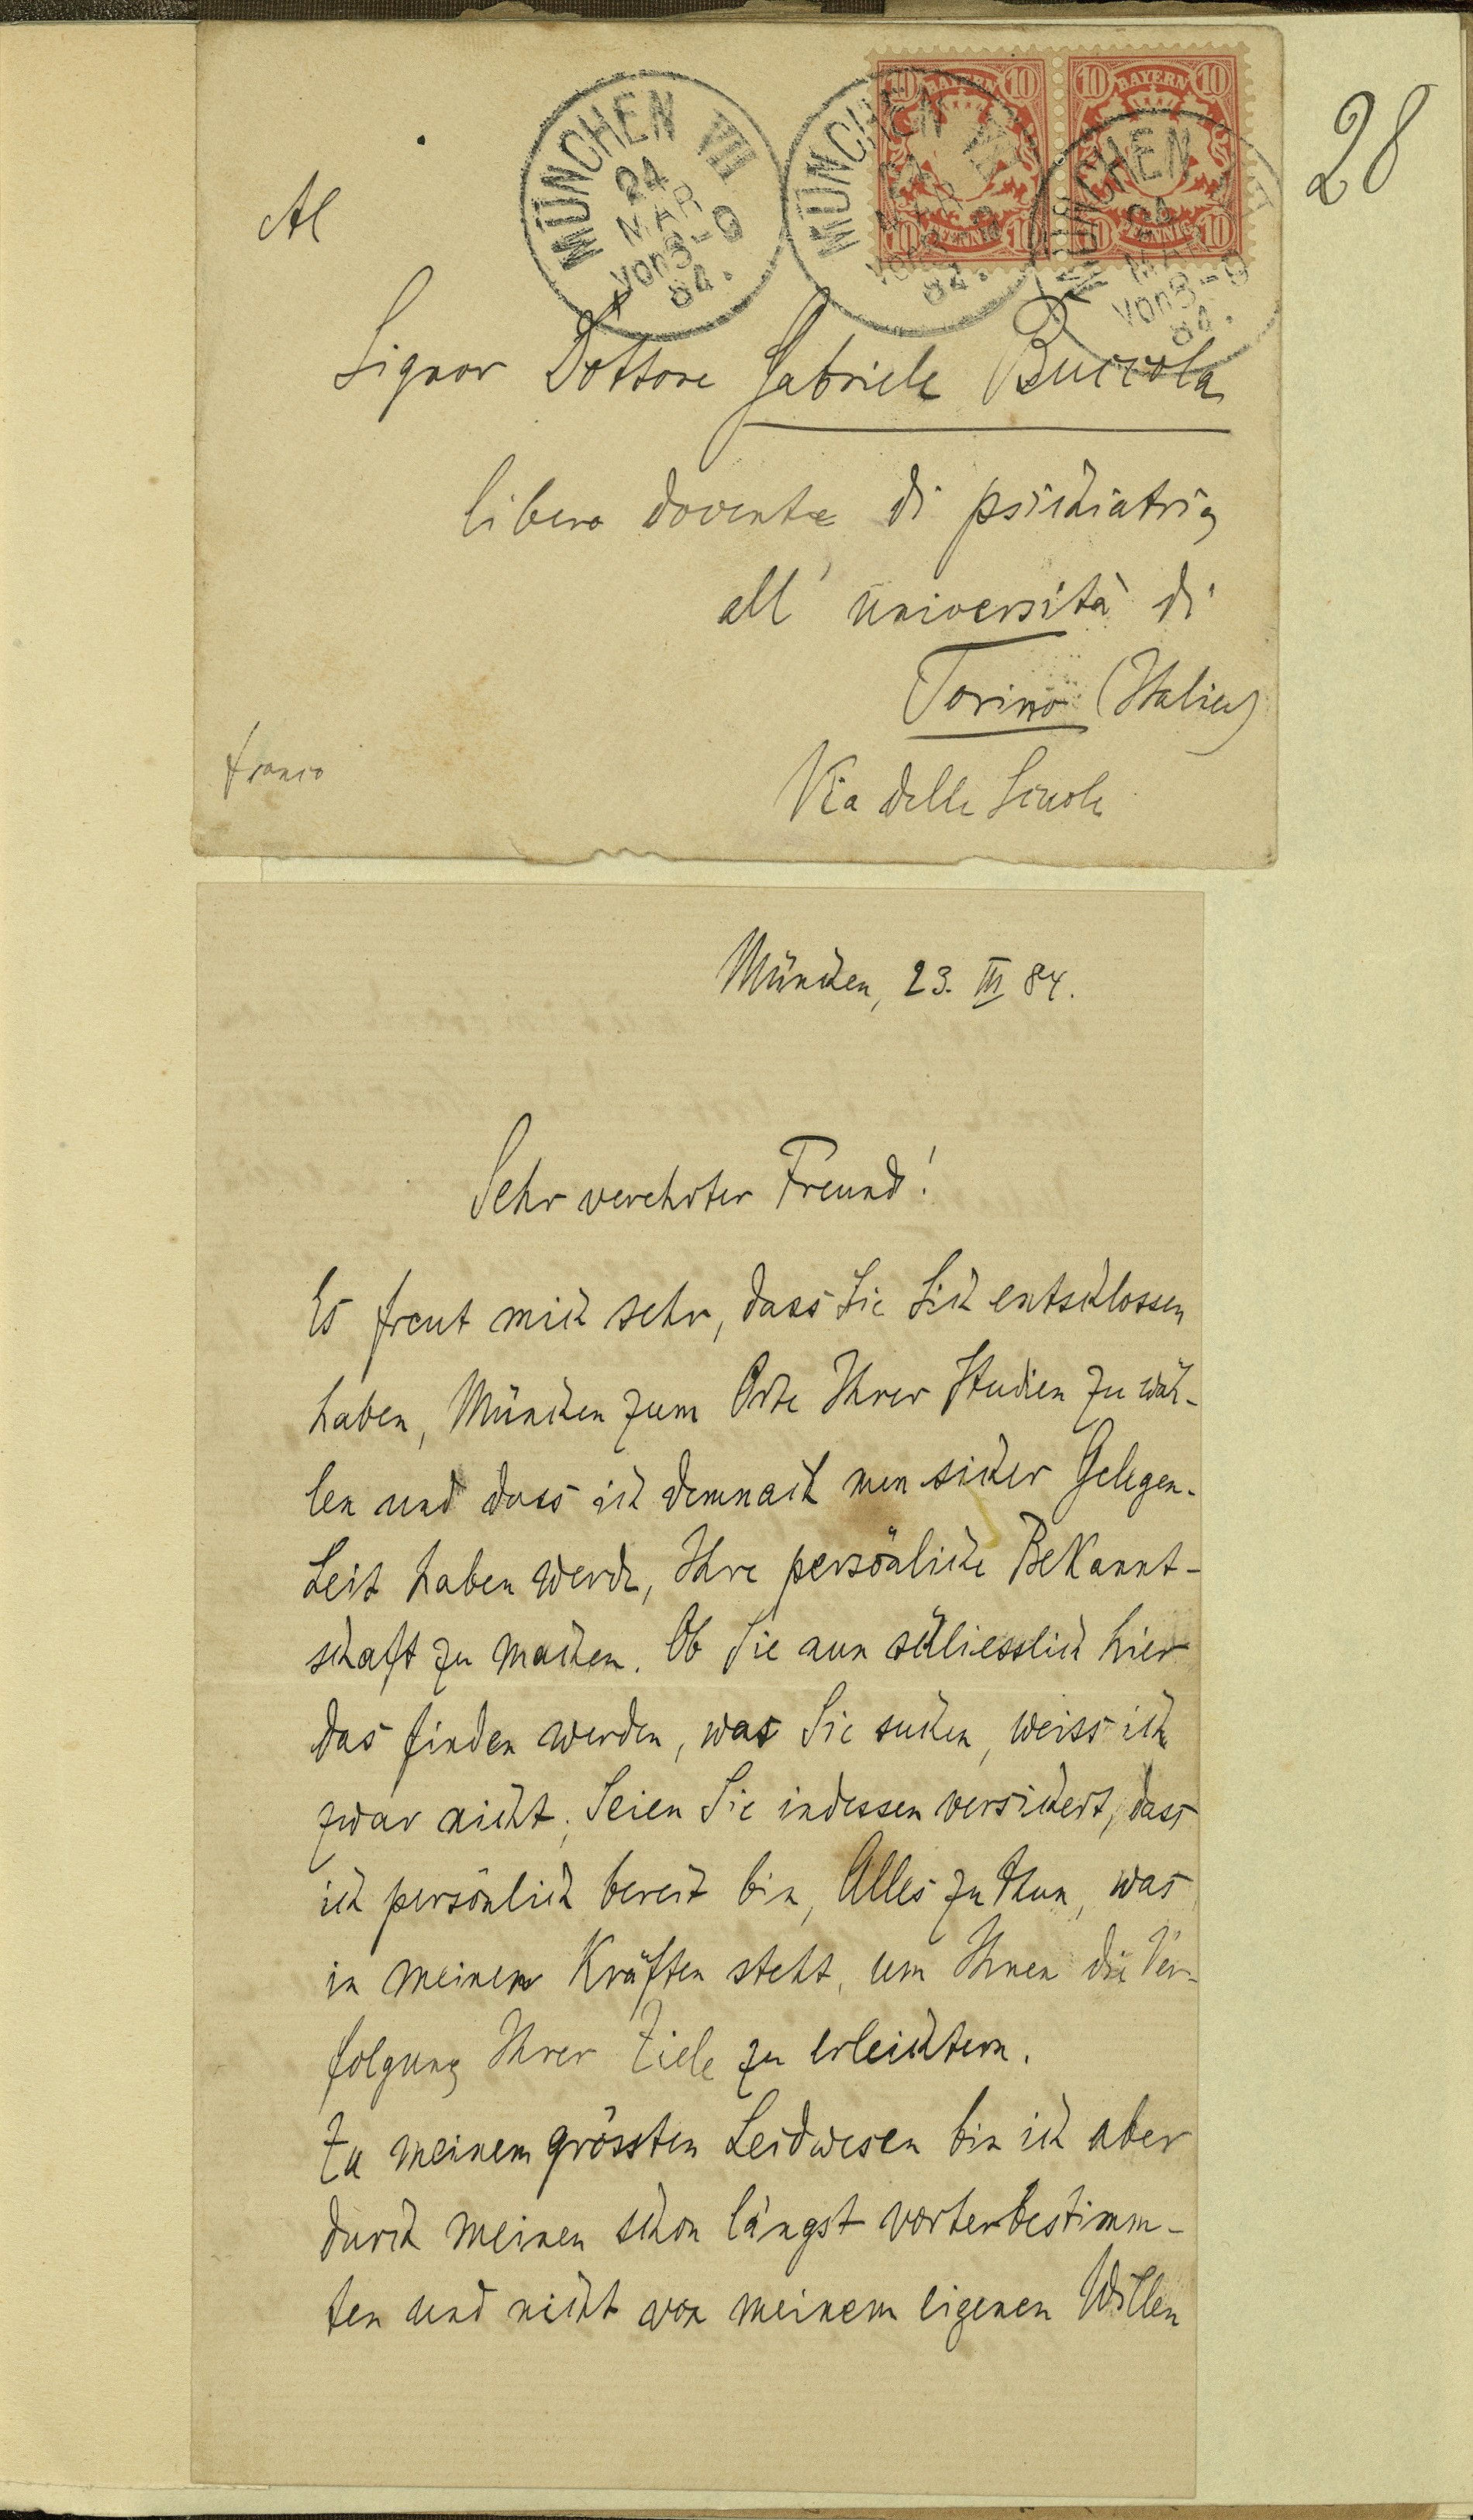 28
MÜNCHEN VII
24
MAR
von 8-9
84.
MÜNCHEN VII
24
MAR
von 8-9
84.
MÜNCHEN VII
24
MAR
von 8-9
84.
10 BAYERN 10
10 PFENNIG 10
10 BAYERN 10
10 PFENNIG 10
Al
Signor Dottore Gabriele Buccola
libero docente di psichiatria
all' università di
Torino (Italien)
franco
Via delle Scuole
München, 23. III 84.
Sehr verehrter Freund!
Es freut mich sehr, dass Sie Sich entschlossen
haben, München zum Orte Ihrer Studien zu wäh-
len und dass ich demnach nun sicher Gelegen-
heit haben werde, Ihre persönliche Bekannt-
schaft zu machen. Ob Sie nun schliesslich hier
das finden werden, was Sie suchen, weiss ich
zwar nicht; Seien Sie indessen versichert, dass
ich persönlich bereit bin, Alles zu thun, was
in meinen Kräften steht, um Ihnen die Ver-
folgung Ihrer Ziele zu erleichtern.
Zu meinem grössten Leidwesen bin ich aber
durch meinen schon längst vorherbestimm-
ten und nicht von meinem eigenen Willen